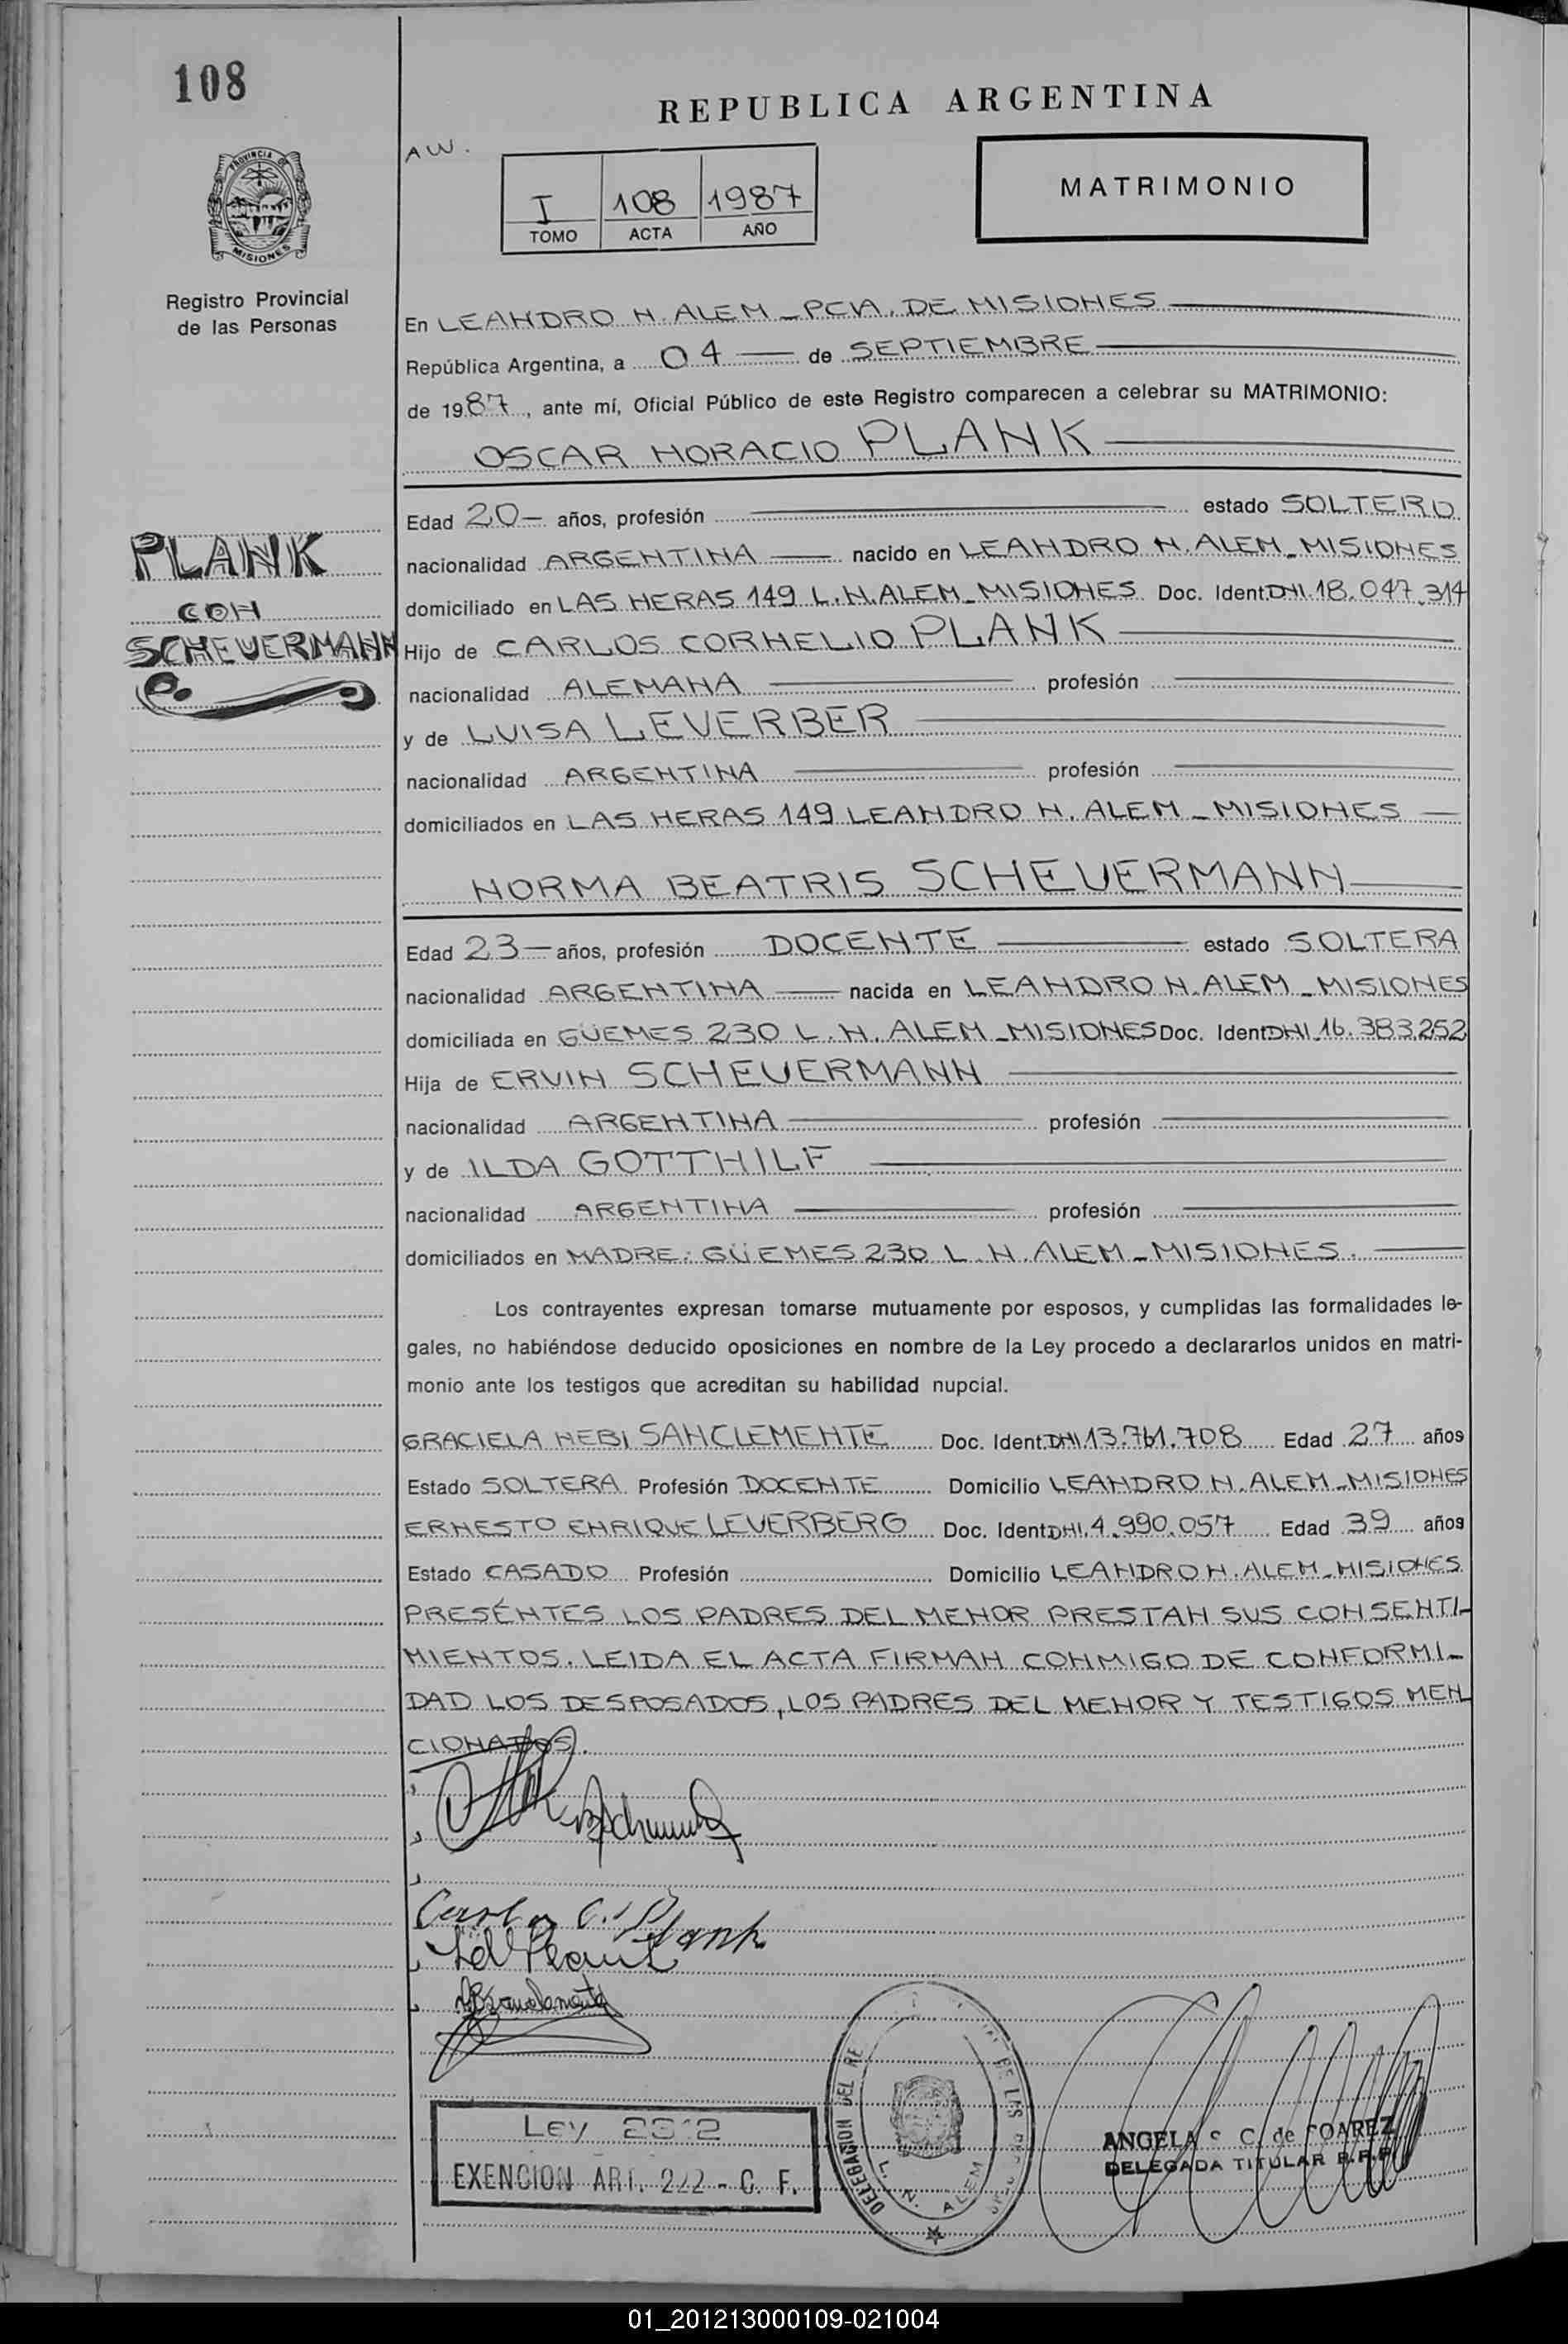 108
REPUBLICA ARGENTINA
AW.
PROVINCIA DE
MISIONES
I 108 1987
TOMO ACTA AÑO
MATRIMONIO
Registro Provincial
de las Personas
En LEANDRO N. ALEM - PCIA. DE MISIONES
República Argentina, a 04 de SEPTIEMBRE
de 1987, ante mí, Oficial Público de este Registro comparecen a celebrar su MATRIMONIO:
OSCAR HORACIO PLANK
Edad 20- años, profesión estado SOLTERO
PLANK
CON
SCHEUERMANN
nacionalidad ARGENTINA nacido en LEANDRO N. ALEM - MISIONES
domiciliado en LAS HERAS 149 L.N.ALEM - MISIONES Doc. Ident. DNI 18.047.314
Hijo de CARLOS CORNELIO PLANK
nacionalidad ALEMANA profesión
y de LUISA LEVERBER
nacionalidad ARGENTINA profesión
domiciliados en LAS HERAS 149 LEANDRO N. ALEM - MISIONES
NORMA BEATRIS SCHEUERMANN
Edad 23- años, profesión DOCENTE estado SOLTERA
nacionalidad ARGENTINA nacida en LEANDRO N. ALEM - MISIONES
domiciliada en GÜEMES 230 L.N. ALEM - MISIONES Doc. Ident. DNI 16.383.252
Hija de ERVIN SCHEUERMANN
nacionalidad ARGENTINA profesión
y de ILDA GOTTHILF
nacionalidad ARGENTINA profesión
domiciliados en MADRE: GÜEMES 230 L.N. ALEM - MISIONES.
Los contrayentes expresan tomarse mutuamente por esposos, y cumplidas las formalidades le-
gales, no habiéndose deducido oposiciones en nombre de la Ley procedo a declararlos unidos en matri-
monio ante los testigos que acreditan su habilidad nupcial.
GRACIELA NEBI SANCLEMENTE Doc. Ident. DNI 13.761.708 Edad 27 años
Estado SOLTERA Profesión DOCENTE Domicilio LEANDRO N. ALEM - MISIONES
ERNESTO ENRIQUE LEVERBERG Doc. Ident. DNI. 4.990.057 Edad 39 años
Estado CASADO Profesión Domicilio LEANDRO N. ALEM - MISIONES
PRESÉNTES LOS PADRES DEL MENOR PRESTAN SUS CONSENTI-
MIENTOS. LEIDA EL ACTA FIRMAN CONMIGO DE CONFORMI-
DAD LOS DESPOSADOS, LOS PADRES DEL MENOR Y TESTIGOS MEN
CIONADOS.
Carlos C. Plank
Ley 2312
EXENCION ART. 222 - C. F.
DELEGACION DEL RE DE LAS
L. N. ALEM
ANGELA C. de SOAREZ
DELEGADA TITULAR R.P.P
01_201213000109-021004